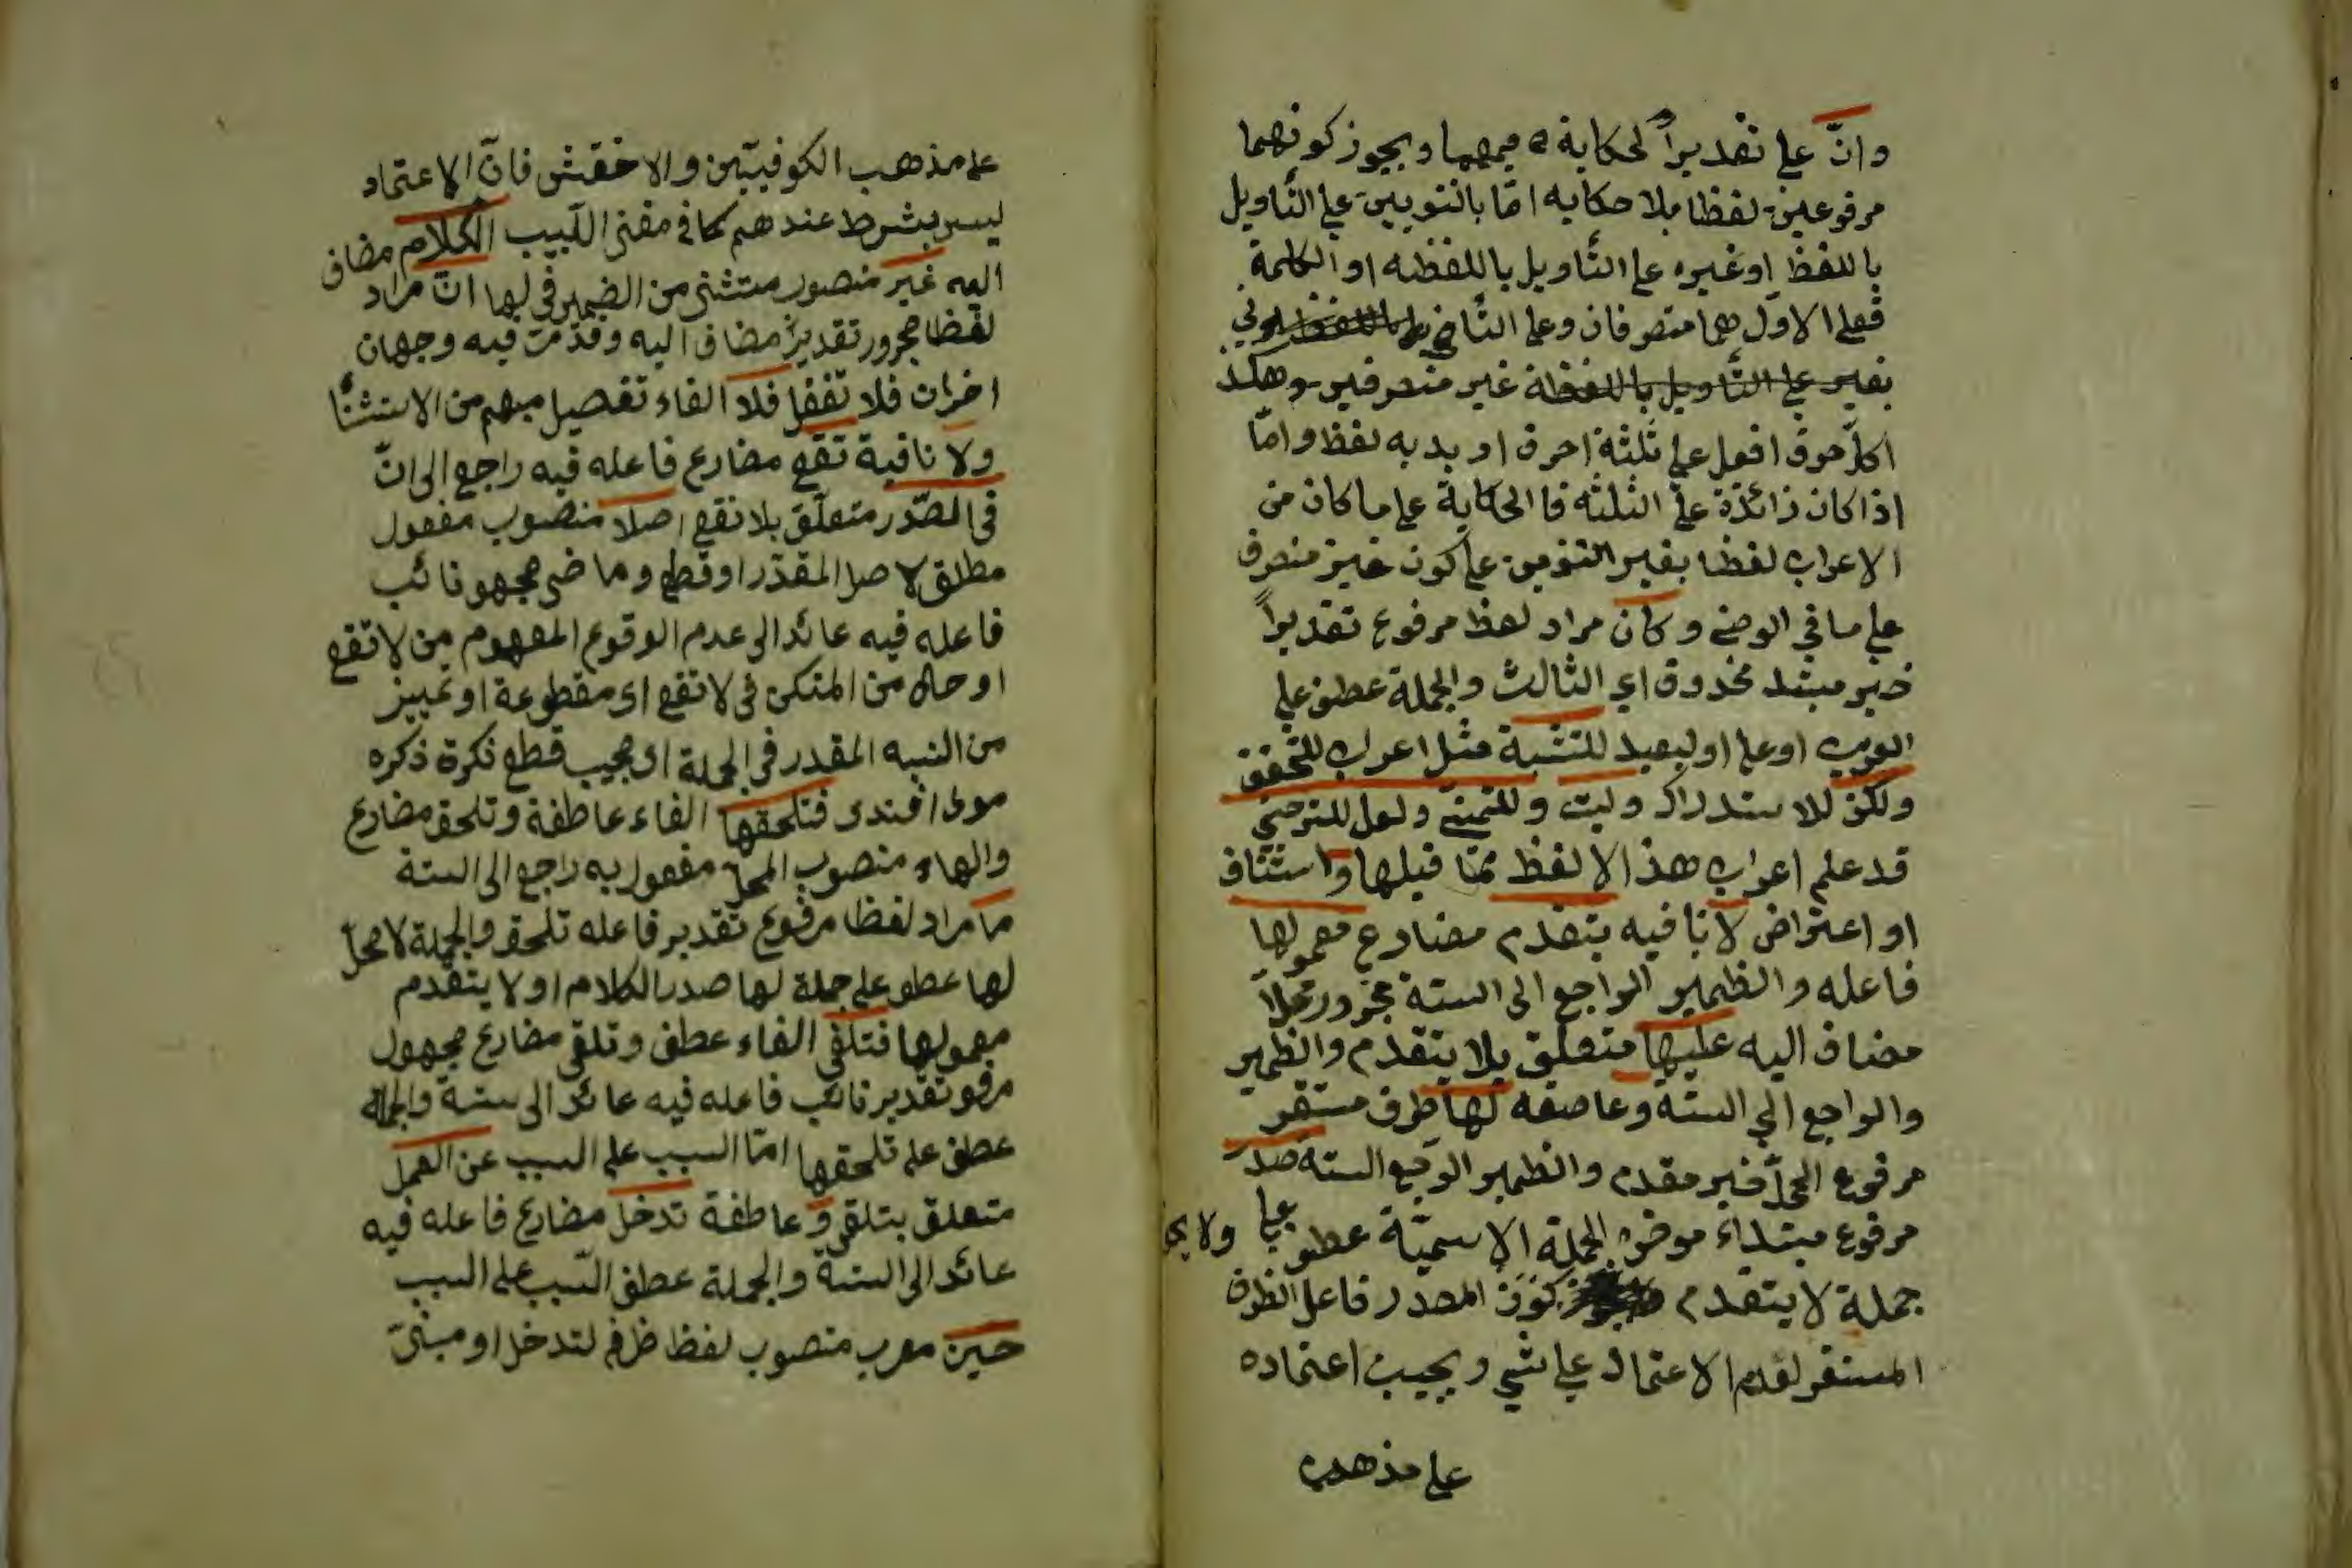 وانّ على تقديراً لحكاية ه فيمهما ويجوز كونهما
مرفوعين لفظا بلا حكايه امّا بالتنوين على التّأويل
باللفظ او غيره على التّأويل باللفظه او الكلمة
فعلى الاوّل هما متصرفان وعلى الثّاني
بغير على التّأويل باللفظة غير منصرفين وهكذ
اكلّ حرف افعل على ثلثة احرف اريد به لفظ وامّا
اذا كان زائدة على الثلثه فا الحكاية على ما كان من
الاعراب لفظا بغير التنوين على كون غير منصرف
على ما في الوضى وكأن مراد لفظ مرفوع تقديراً
خبر مبتد مخذوق اى الثالث والجملة عطف على
القريب او على اولبعيد للتشبة مثل اعراب للتحقق
ولكن للاستدراك وليت وللتمنّى ولعل للترجى
قد علم اعراب هذ الالفظ ممّا قبلها واستئناف
او اعتراض لا نافيه يتقدم مضارع معمولها
فاعله والظمير الراجع الى الستة مجرور محلاً
مضاف اليه عليها متعلق بلا يتقدم والظمير
والراجع الى الستة وعاصفه لها ظرف مستقر
مرفوع المحلّ خبر مقدم والظمير الستة صدر
مرفوع مبتداء موخر الجملة الاسميّة عطف على ولا يجو
جملة لا يتقدم كون المصدر فاعل الظرف
المستقر لعدم الاعتماد على شئ ويجيب اعتماده
على مذهب
على مذهب الكوفييّين والاخفش فانّ الاعتماد
ليس بشرط عندهم كما في مغنى اللّبيب الكلام مضاف
اليه غير منصوب مستثنى من الضمير في لها انّ مراد
لفظا مجرور تقديرا مضاف اليه وقدّمت فيه وجهان
اخران فلا تغفل فلا الفاء تفصيل مبهم من الاستثنأ
ولا نافية تقع مضارع فاعله فيه راجع الى انّ
فى الصّدر متعلّق بلا تقع اصلا منصوب مفعول
مطلق لاصل المقدّر او قطع وماضى مجهو نائب
فاعله فيه عائد الى عدم الوقوع المفهوم من لا تقع
او حال من المتكن فى لا تقع اى مقطوعة او تمييز
من النبيه المقدر فى الجملة اى مجيب قطع نكرة ذكره
مولى افندى فتلحقها الفاء عاطفة وتلحق مضارع
والهاء منصوب المحلّ مفعول به راجع الى الستة
ما مراد لفظا مرفوع تقدير فاعله تلحق والجملة لا محلّ
لها عطف على جملة لها صدر الكلام او لا يتقدم
معمولها فتلغى الفاء عطف وتلغى مضارع مجهول
مرفو تقدير نائب فاعله فيه عائد الى ستة والجملة
عطف على تلحقها امّا السبب على السبب عن العمل
متعلق بتلغى و عاطفة تدخل مضارع فاعله فيه
عائد الى الستة والجملة عطف السّبب على السبب
حين معرب منصوب لفظ ظرف لتدخل او مبنىّ